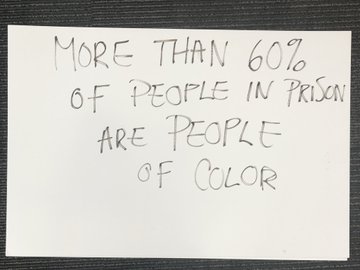 MORE THAN 60%
OF PEOPLE IN PRISON
ARE PEOPLE
OF COLOR